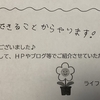 できることからやります。
ございました♪
て、ＨＰやブログ等でご紹介させていただ
ライフ